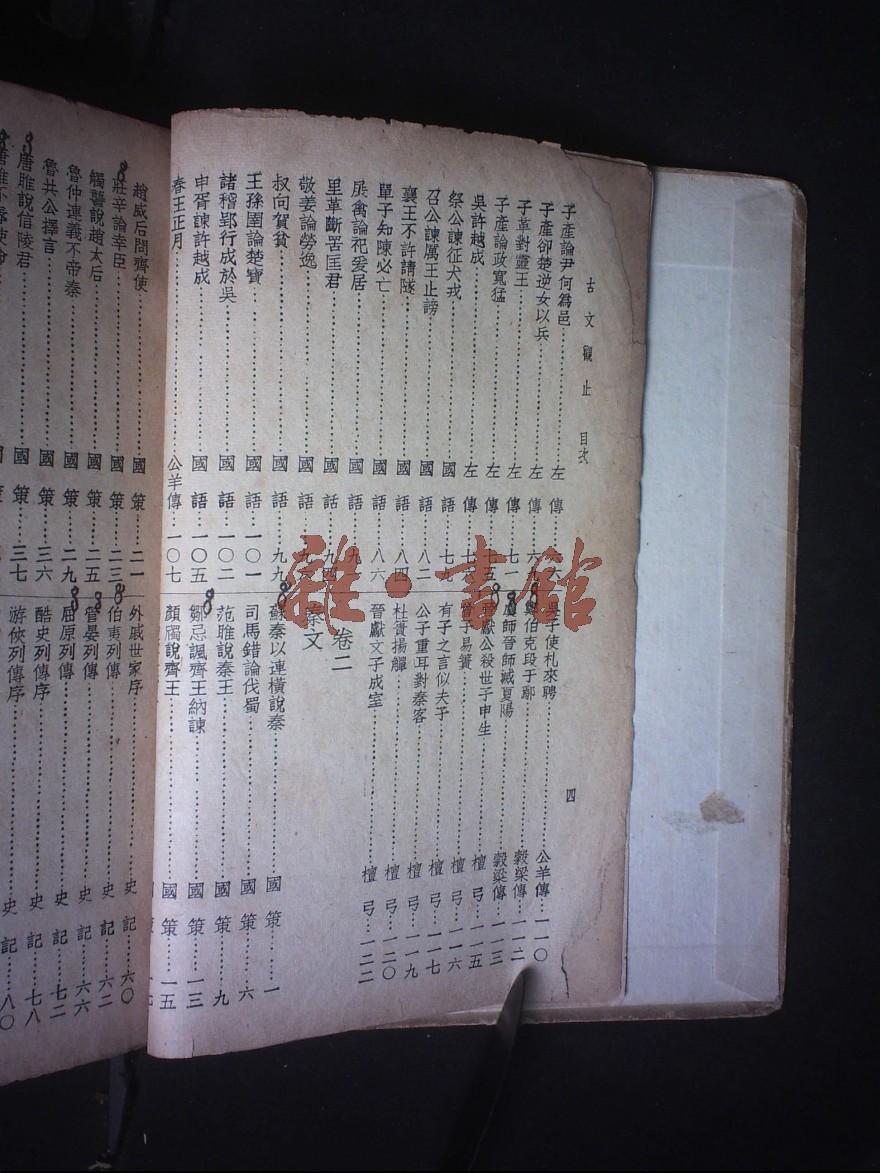 古文觀止 目次
四
子產論尹何為邑……左傳
子產卻楚逆女以兵……左傳…六九
子革對靈王……左傳…七一
子產論政寬猛……左傳…七五
吳許越成……左傳
祭公諫征犬戎……國語
召公諫厲王止謗……國語…八二
襄王不許請隧……國語…八四
單子知陳必亡……國語…八六
展禽論祀爰居……國語
里革斷罟匡君……國語…九四
敬姜論勞逸……國語
叔向賀貧……國語…九九
王孫圉論楚寶……國語…一〇一
諸稽郢行成於吳……國語…一〇二
申胥諫許越成……國語…一〇五
春王正月……公羊傳…一〇七
吳子使札來聘……公羊傳…一一〇
鄭伯克段于鄢……穀梁傳…一一二
虞師晉師滅夏陽……穀梁傳…一一三
晉獻公殺世子申生……檀弓…一一五
曾子易簀……檀弓…一一六
有子之言似夫子……檀弓…一一七
公子重耳對秦客……檀弓…一一九
杜蕢揚觶……檀弓…一二〇
晉獻文子成室……檀弓…一二二
卷二
秦文
蘇秦以連橫說秦……國策…一
司馬錯論伐蜀……國策…六
范雎說秦王……國策…九
鄒忌諷齊王納諫……國策…一三
顏斶說齊王……國策…一五
趙威后問齊使……國策…二一
莊辛論幸臣……國策…二三
觸讋說趙太后……國策…二五
魯仲連義不帝秦……國策…二九
魯共公擇言……國策…三六
唐雎說信陵君……國策…三七
外戚世家序……史記…六〇
伯夷列傳……史記…六二
管晏列傳……史記…六六
屈原列傳……史記…七二
酷史列傳序……史記…七八
游俠列傳序……史記…八〇
雜·書館